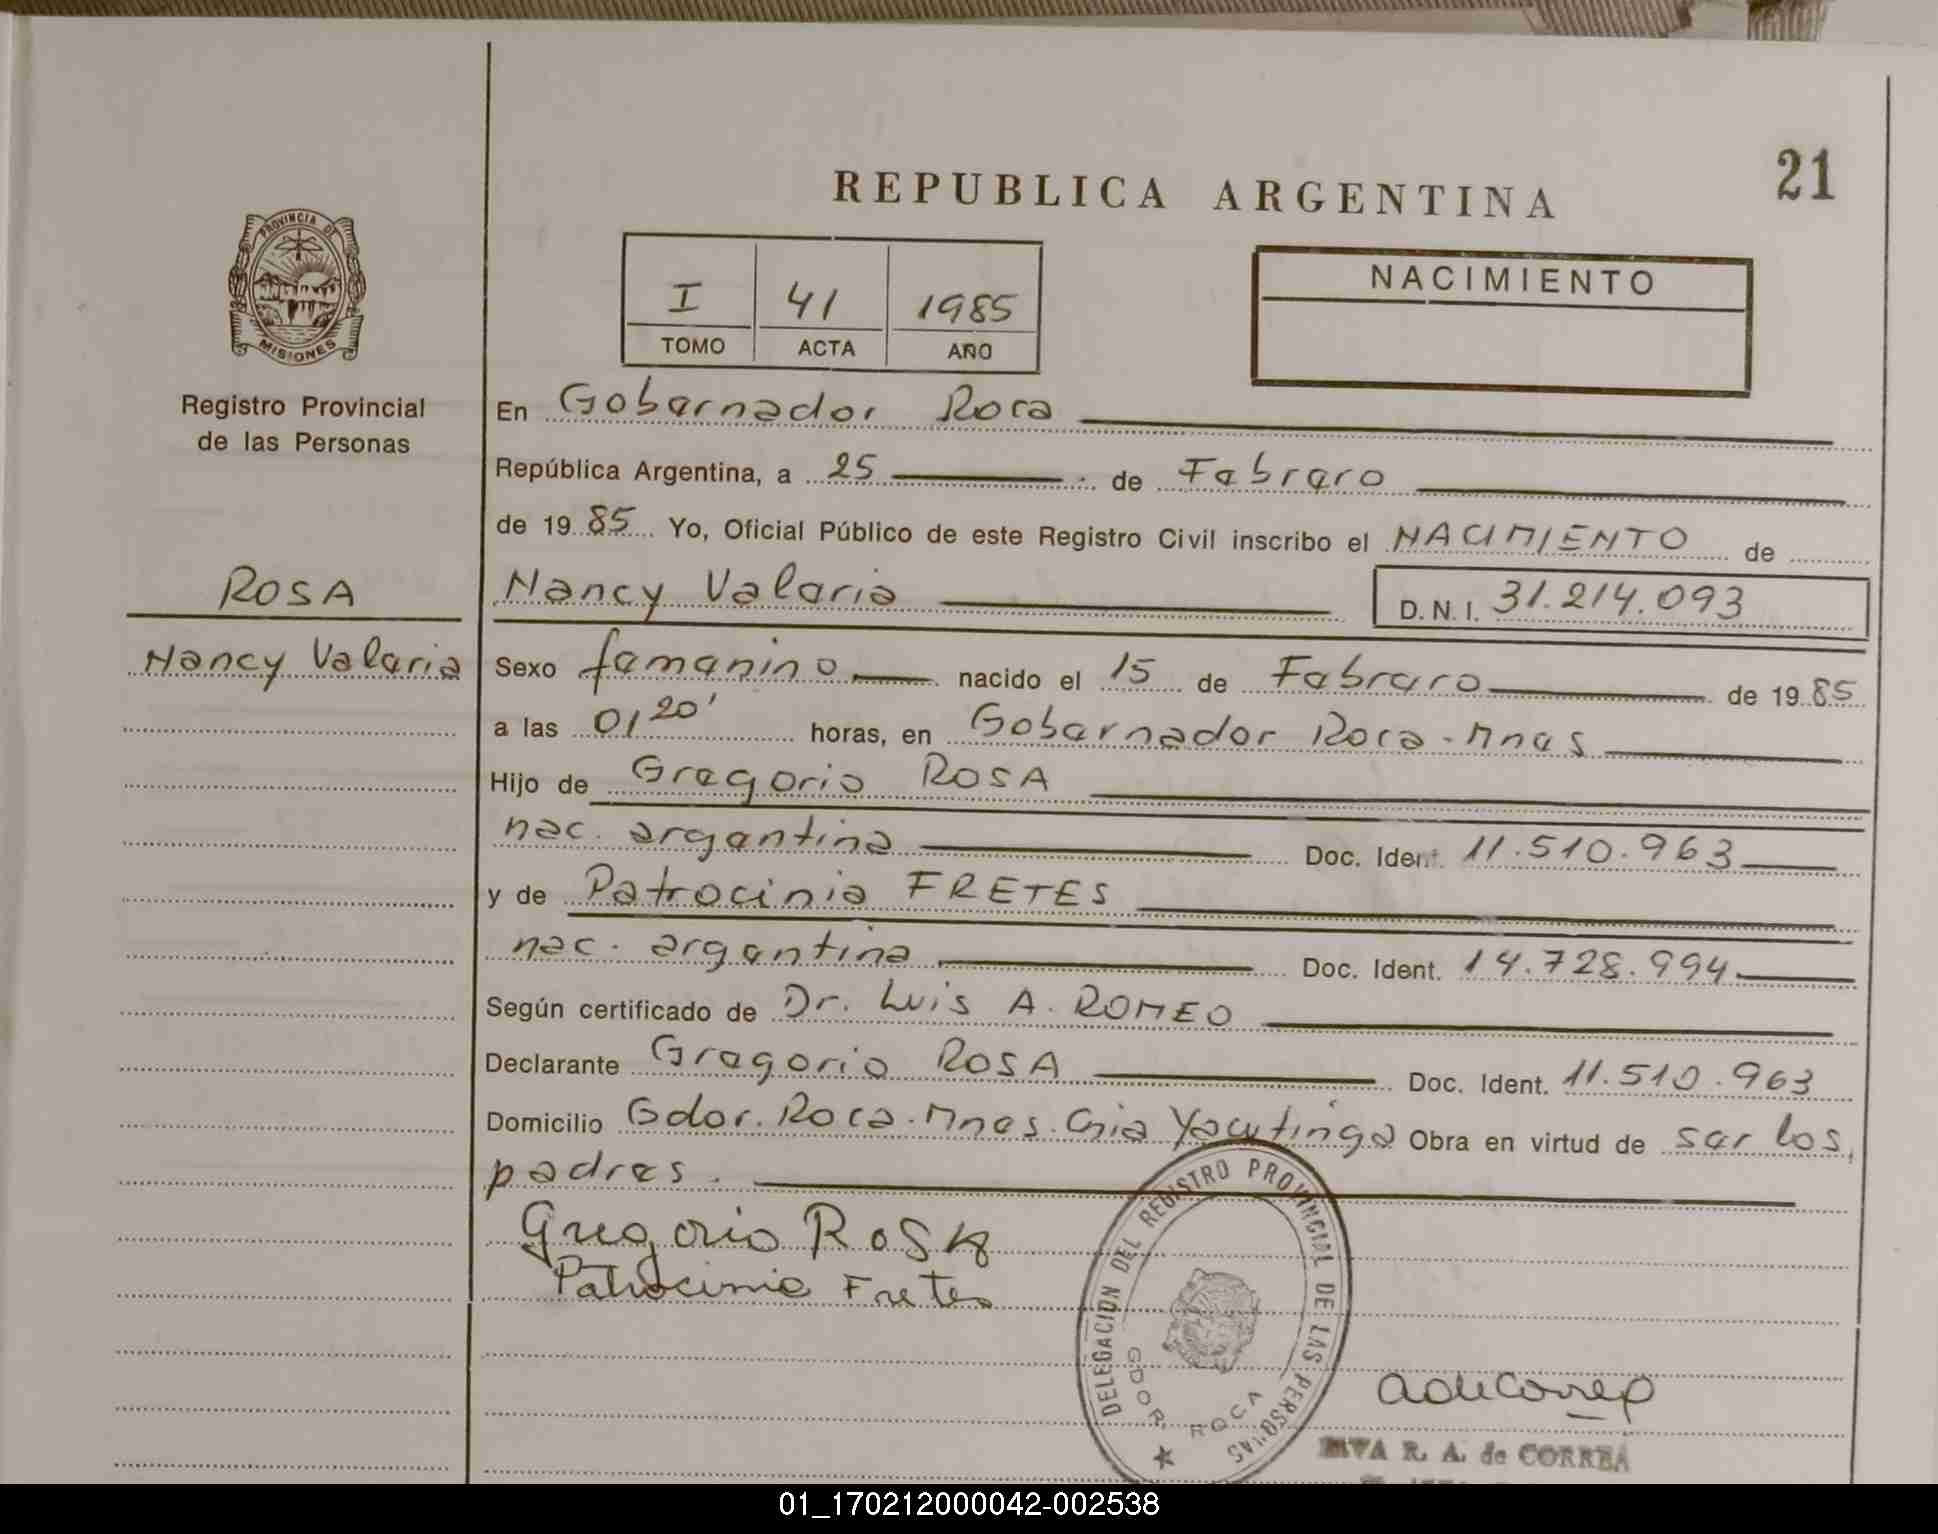 21
REPUBLICA ARGENTINA
PROVINCIA DE
MISIONES
Registro Provincial
de las Personas
I 41 1985
TOMO ACTA AÑO
NACIMIENTO
En Gobernador Roca
República Argentina, a 25 de Febrero
de 1985 Yo, Oficial Público de este Registro Civil inscribo el NACIMIENTO de
ROSA
Nancy Valeria
Nancy Valeria D.N.I. 31.214.093
Sexo femenino nacido el 15 de Febrero de 1985
a las 01 20' horas, en Gobernador Roca - Mnes
Hijo de Gregorio ROSA
nac. argentina Doc. Ident. 11.510.963
y de Patrocinia FRETES
nac. argentina Doc. Ident. 14.728.994
Según certificado de Dr. Luis A. ROMEO
Declarante Gregorio ROSA Doc. Ident. 11.510.963
Domicilio Gdor. Roca - Mnes. Cnia Yacutinga Obra en virtud de ser los
padres.
Gregorio ROSA
Patrocinia Fretes
DELEGACION DEL REGISTRO PROVINCIAL DE LAS PERSONAS
GDOR. ROCA
R. A. de CORREA
01_170212000042-002538